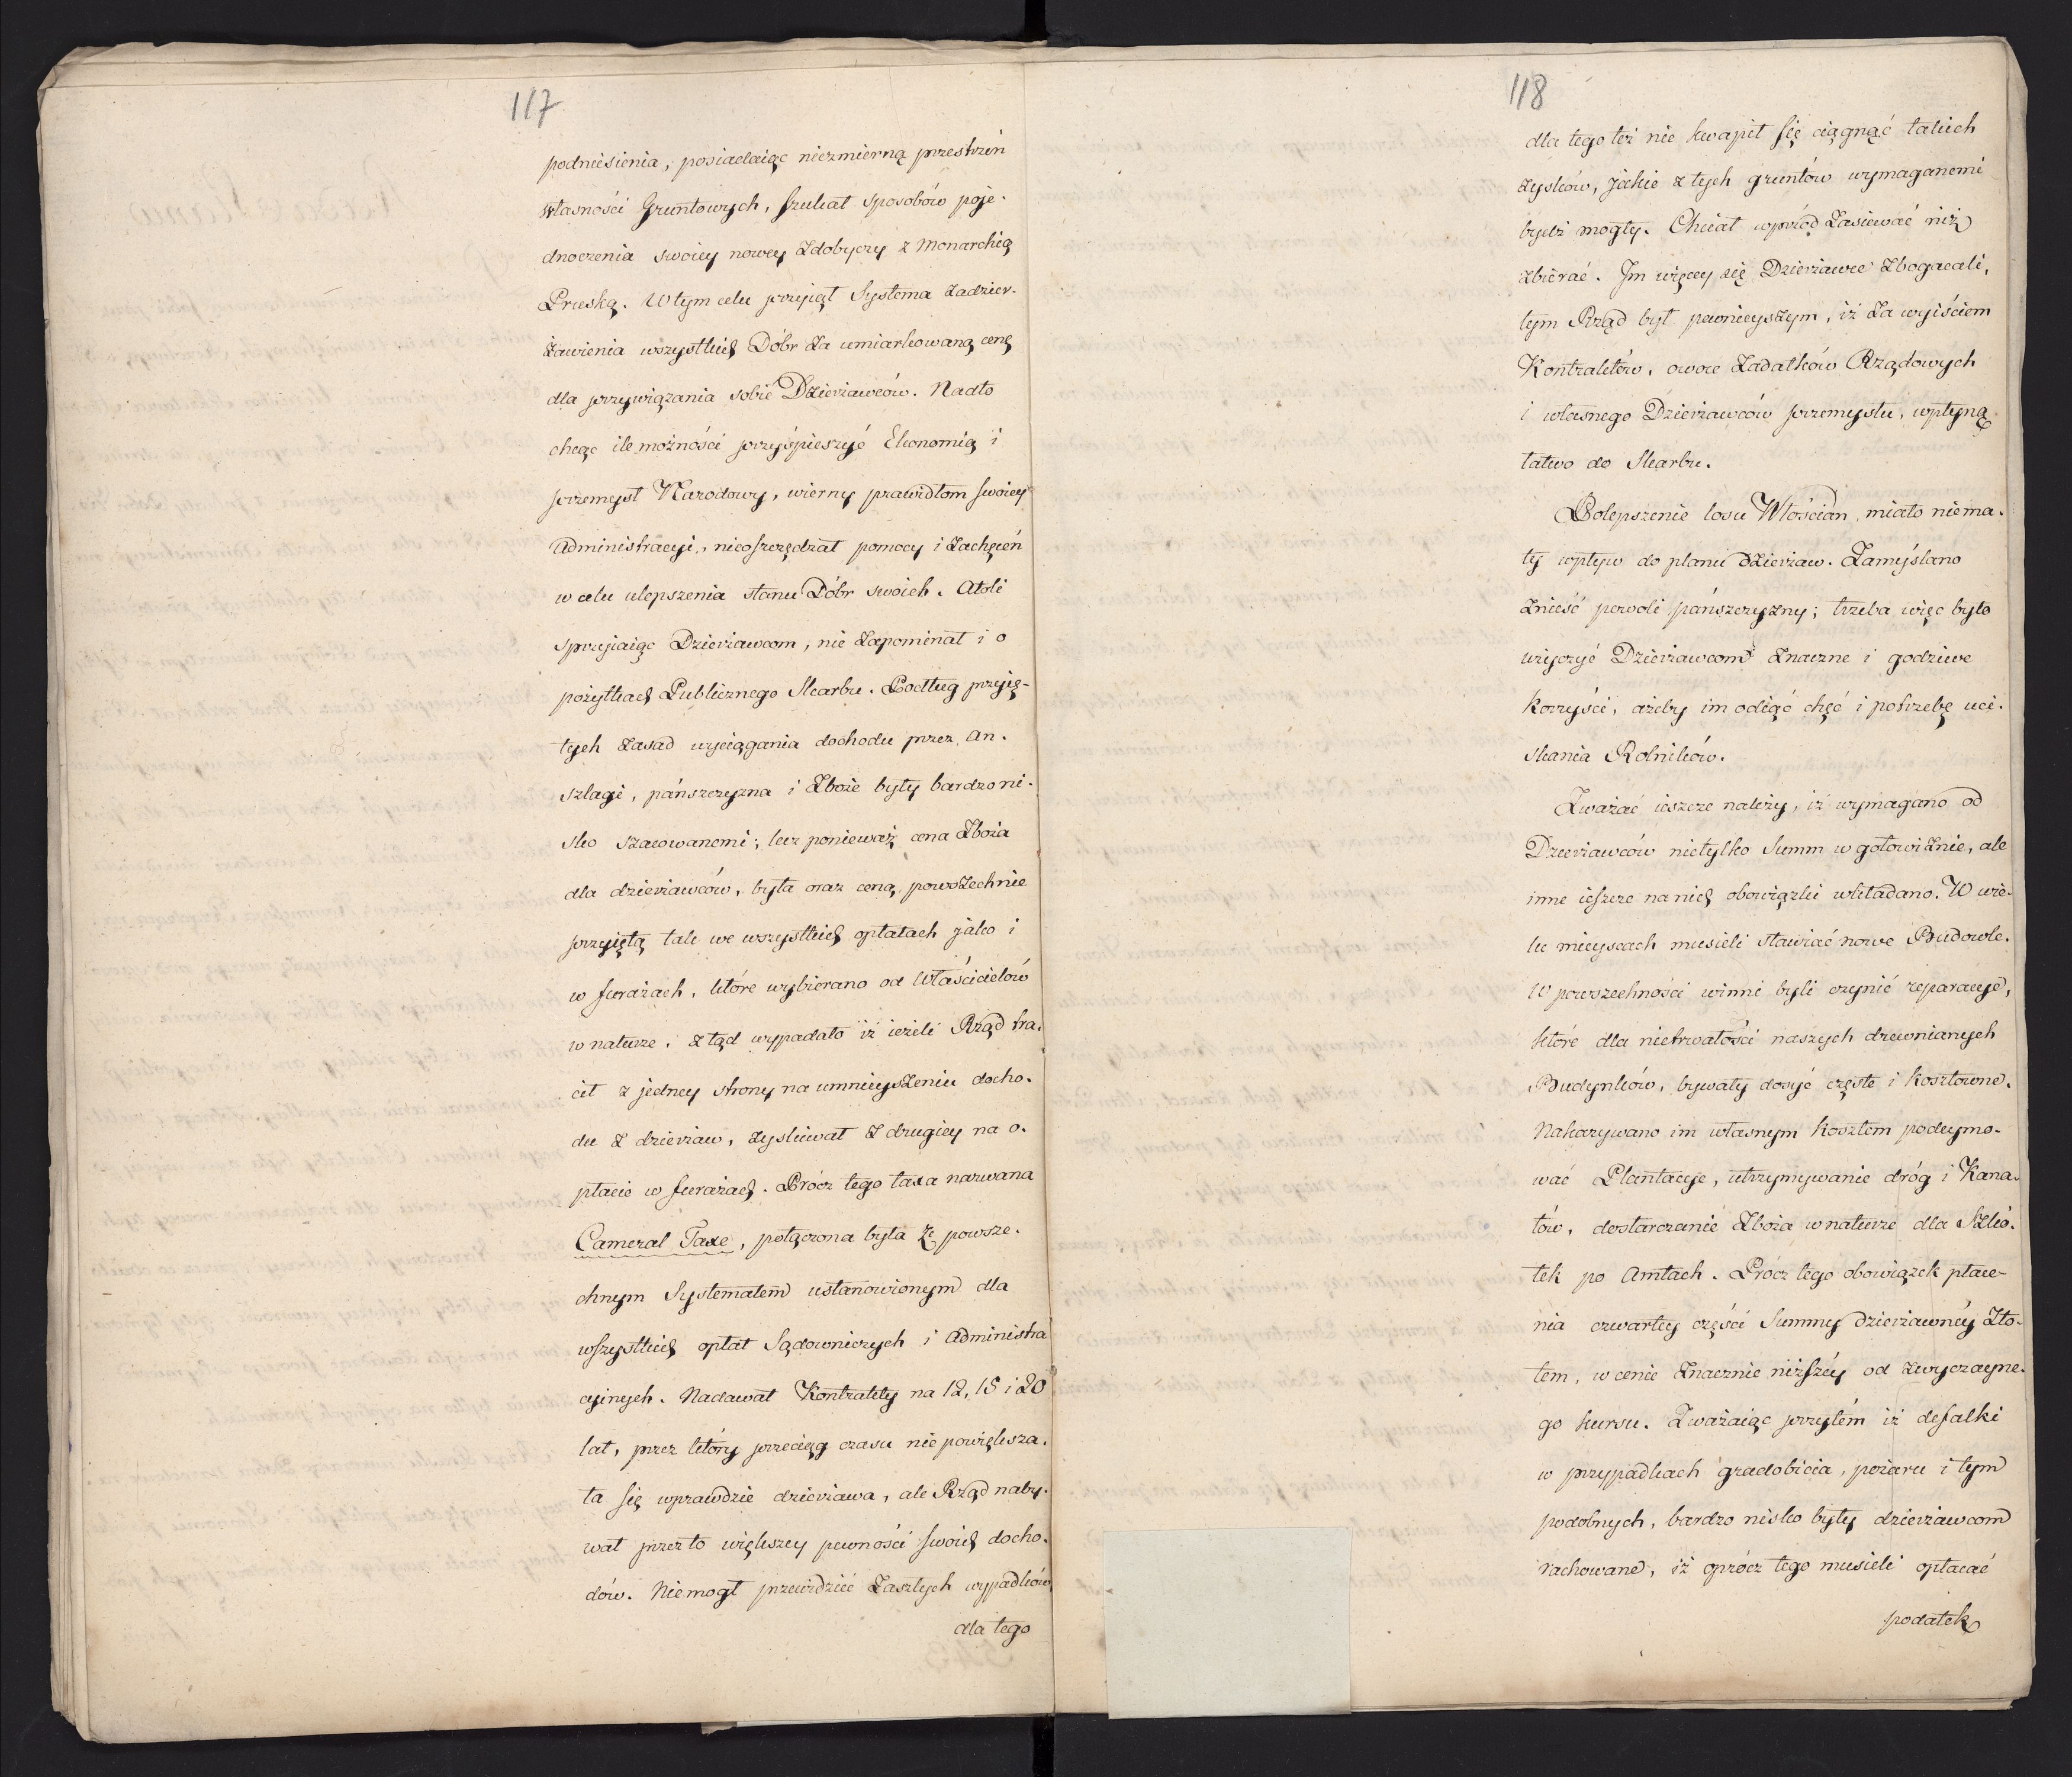 117
podniesienia, posiadaiąc niezmierną przestrzeń
własności Gruntowych, szukał sposobów poje-
dnoczenia swoiey nowey Zdobyczy z Monarchią
Pruską. W tym celu przyjął Systema zadzier-
żawienia wszystkich Dóbr za umiarkowaną cenę
dla przywiązania sobie Dzierżawców. Nadto
chcąc ile możności przyśpieszyć Ekonomią i
przemysł Narodowy, wierny prawidłom swoiey
Administracyi, nieoszczędzał pomocy i zachęceń
w celu ulepszenia stanu Dóbr swoich. Atoli
sprzyiaiąc Dzierżawcom, nie zapominał i o
pożytkach Publicznego Skarbu. Podług przyię-
tych zasad wyciągania dochodu przez An-
szlagi, pańszczyzna i Zboże były bardzo ni-
sko szacowanemi; lecz ponieważ cena Zboża
dla dzierżawców, była oraz ceną powszechnie
przyiętą tak we wszystkich opłatach jako i
w furażach, które wybierano od Właścicielów
w naturze, ztąd wypadało iż ieżeli Rząd tra-
cił z jedney strony na umnieyszeniu docho-
du z dzierżaw, zyskiwał z drugiey na o-
płacie w furażach. Prócz tego taxa nazwana
Cameral Taxe, połączona była ze powsze-
chnym Systematem ustanowionym dla
wszystkich opłat Sądowniczych i Administra
cyinych. Nadawał Kontrakty na 12, 15 i 20
lat, przez który przeciąg czasu nie powiększa-
ła się wprawdzie dzierżawa, ale Rząd naby-
wał przez to większey pewności swoich docho-
dów. Niemogł przewidzieć Zaszłych wypadków
dla tego
118
dla tego też nie kwapił się ciągnąć takich
zysków, jakie z tych gruntów wymaganemi
bydź mogły. Chciał wprzód Zasiewać niż
zbierać. Im więcey się Dzierżawce zbogacali,
tym Rząd był pewnieyszym, iż za wyiściem
Kontraktów, owoce Zadatków Rządowych
i własnego Dzierżawców przemysłu, wpłyną
łatwo do Skarbu.
Polepszenie losu Włościan, miało niema-
ły wpływ do planu dzierżaw. Zamyślano
znieść powoli pańszczyzny; trzeba więc było
użyczyć Dzierżawcom znaczne i godziwe
korzyści, ażeby im odiąć chęć i potrzebę uci-
skania Rolników.
Zważać ieszcze należy, iż wymagano od
Dzierżawców nietylko Summ w gotowiźnie, ale
inne ieszcze na nich obowiązki wkładano. W wie-
lu mieyscach musieli stawiać nowe Budowle.
W powszechności winni byli czynić reparacye,
które dla nietrwałości naszych drewnianych
Budynków, bywały dosyć częste i kosztowne.
Nakazywano im własnym kosztem podeymo-
wać Plantacye, utrzymywanie dróg i Kana-
łów, dostarczanie Zboża w naturze dla Szkó-
łek po Amtach. Prócz tego obowiązek płace-
nia czwartey części Summy dzierżawnéy Zło-
tem, w cenie Znacznie niższéy od zwyczayne-
go kursu. Zważaiąc przytém iż defalki
w przypadkach gradobicia, pożaru i tym
podobnych, bardzo nisko były dzierżawcom
rachowane, iż oprócz tego musieli opłacać
podatek